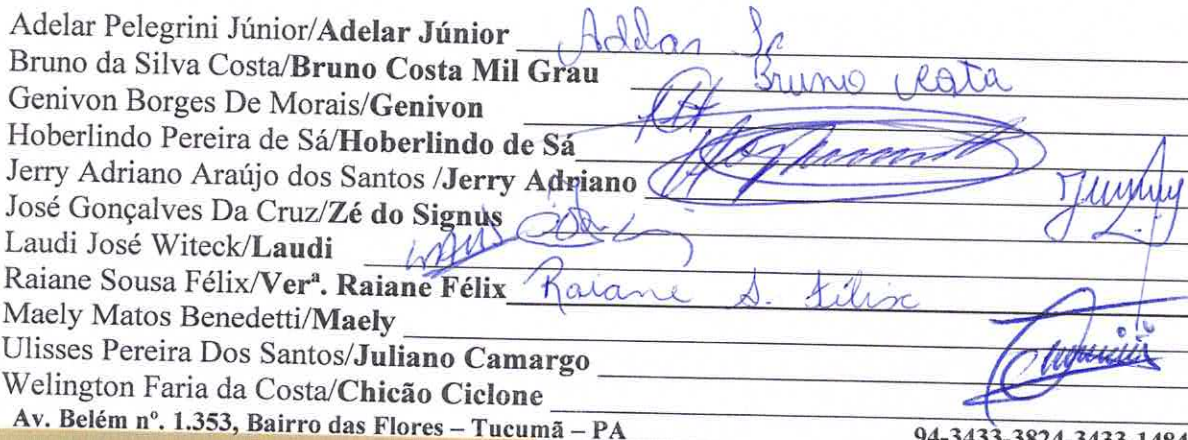 Adelar Pelegrini Júnior/Adelar Júnior Adelar Jr
Bruno da Silva Costa/Bruno Costa Mil Grau Bruno Costa
Genivon Borges De Morais/Genivon
Hoberlindo Pereira de Sá/Hoberlindo de Sá
Jerry Adriano Araújo dos Santos /Jerry Adriano
José Gonçalves Da Cruz/Zé do Signus
Laudi José Witeck/Laudi
Raiane Sousa Félix/Verª. Raiane Félix Raiane S. Félix
Maely Matos Benedetti/Maely
Ulisses Pereira Dos Santos/Juliano Camargo
Welington Faria da Costa/Chicão Ciclone
Av. Belém nº. 1.353, Bairro das Flores – Tucumã – PA 94-3433-3824-3433-1484